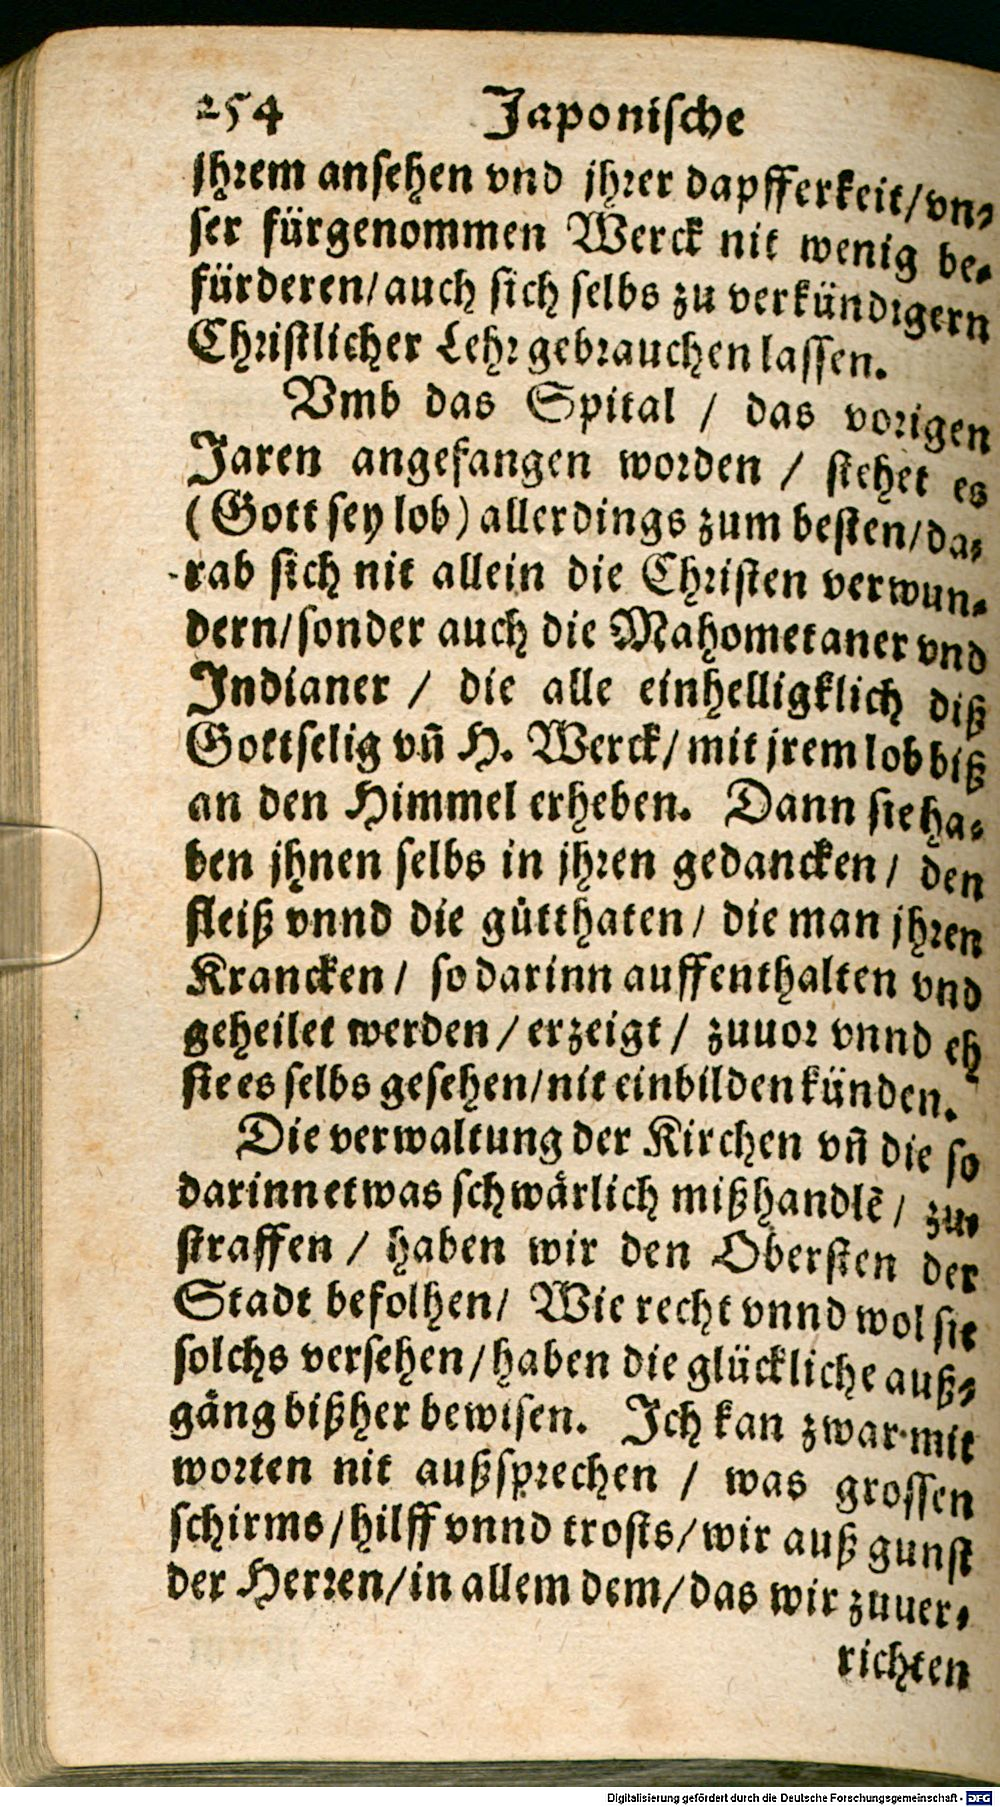 254 Japonische
jhrem ansehen vnd jhrer dapfferkeit/vn-
ser fürgenommen Werck nit wenig be-
fürderen/auch sich selbs zu verkündigern
Christlicher Lehr gebrauchen lassen.
Vmb das Spital / das vorigen
Jaren angefangen worden / stehet es
(Gott sey lob) allerdings zum besten/da-
rab sich nit allein die Christen verwun-
dern/sonder auch die Mahometaner vnd
Indianer / die alle einhelligklich diß
Gottselig vñ H. Werck/mit jrem lob biß
an den Himmel erheben. Dann sie ha-
ben jhnen selbs in jhren gedancken/ den
fleiß vnnd die gůtthaten/ die man jhren
Krancken/ so darinn auffenthalten vnd
geheilet werden/erzeigt/ zuuor vnnd eh
sie es selbs gesehen/nit einbilden künden.
Die verwaltung der Kirchen vñ die so
darinn etwas schwärlich mißhandlē/ zu-
straffen / haben wir den Obersten der
Stadt befolhen/ Wie recht vnnd wol sie
solchs versehen/haben die glückliche auß-
gäng bißher bewisen. Ich kan zwar mit
worten nit außsprechen / was grossen
schirms/hilff vnnd trosts/wir auß gunst
der Herren/in allem dem/das wir zuuer-
richten
Digitalisierung gefördert durch die Deutsche Forschungsgemeinschaft - DFG